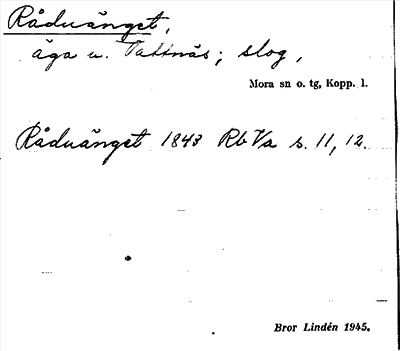 Råduänget,
äga u. Vattnäs; slog,
Mora sn o. tg, Kopp. l.
Råduänget 1843 Rb Va s. 11, 12.
Bror Lindén 1945.